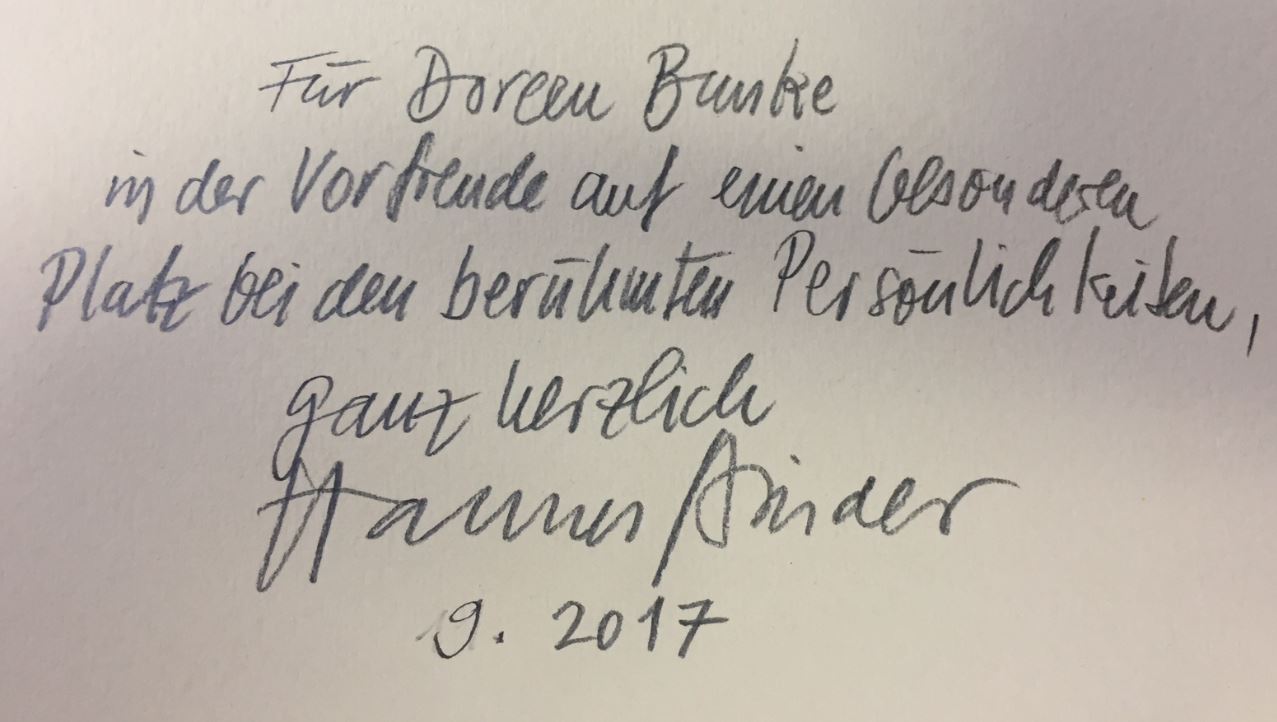 Für Doreen Bunke
in der Vorfreude auf einen besonderen
Platz bei den berühmten Persönlichkeiten,
ganz herzlich
Hannes Binder
9. 2017